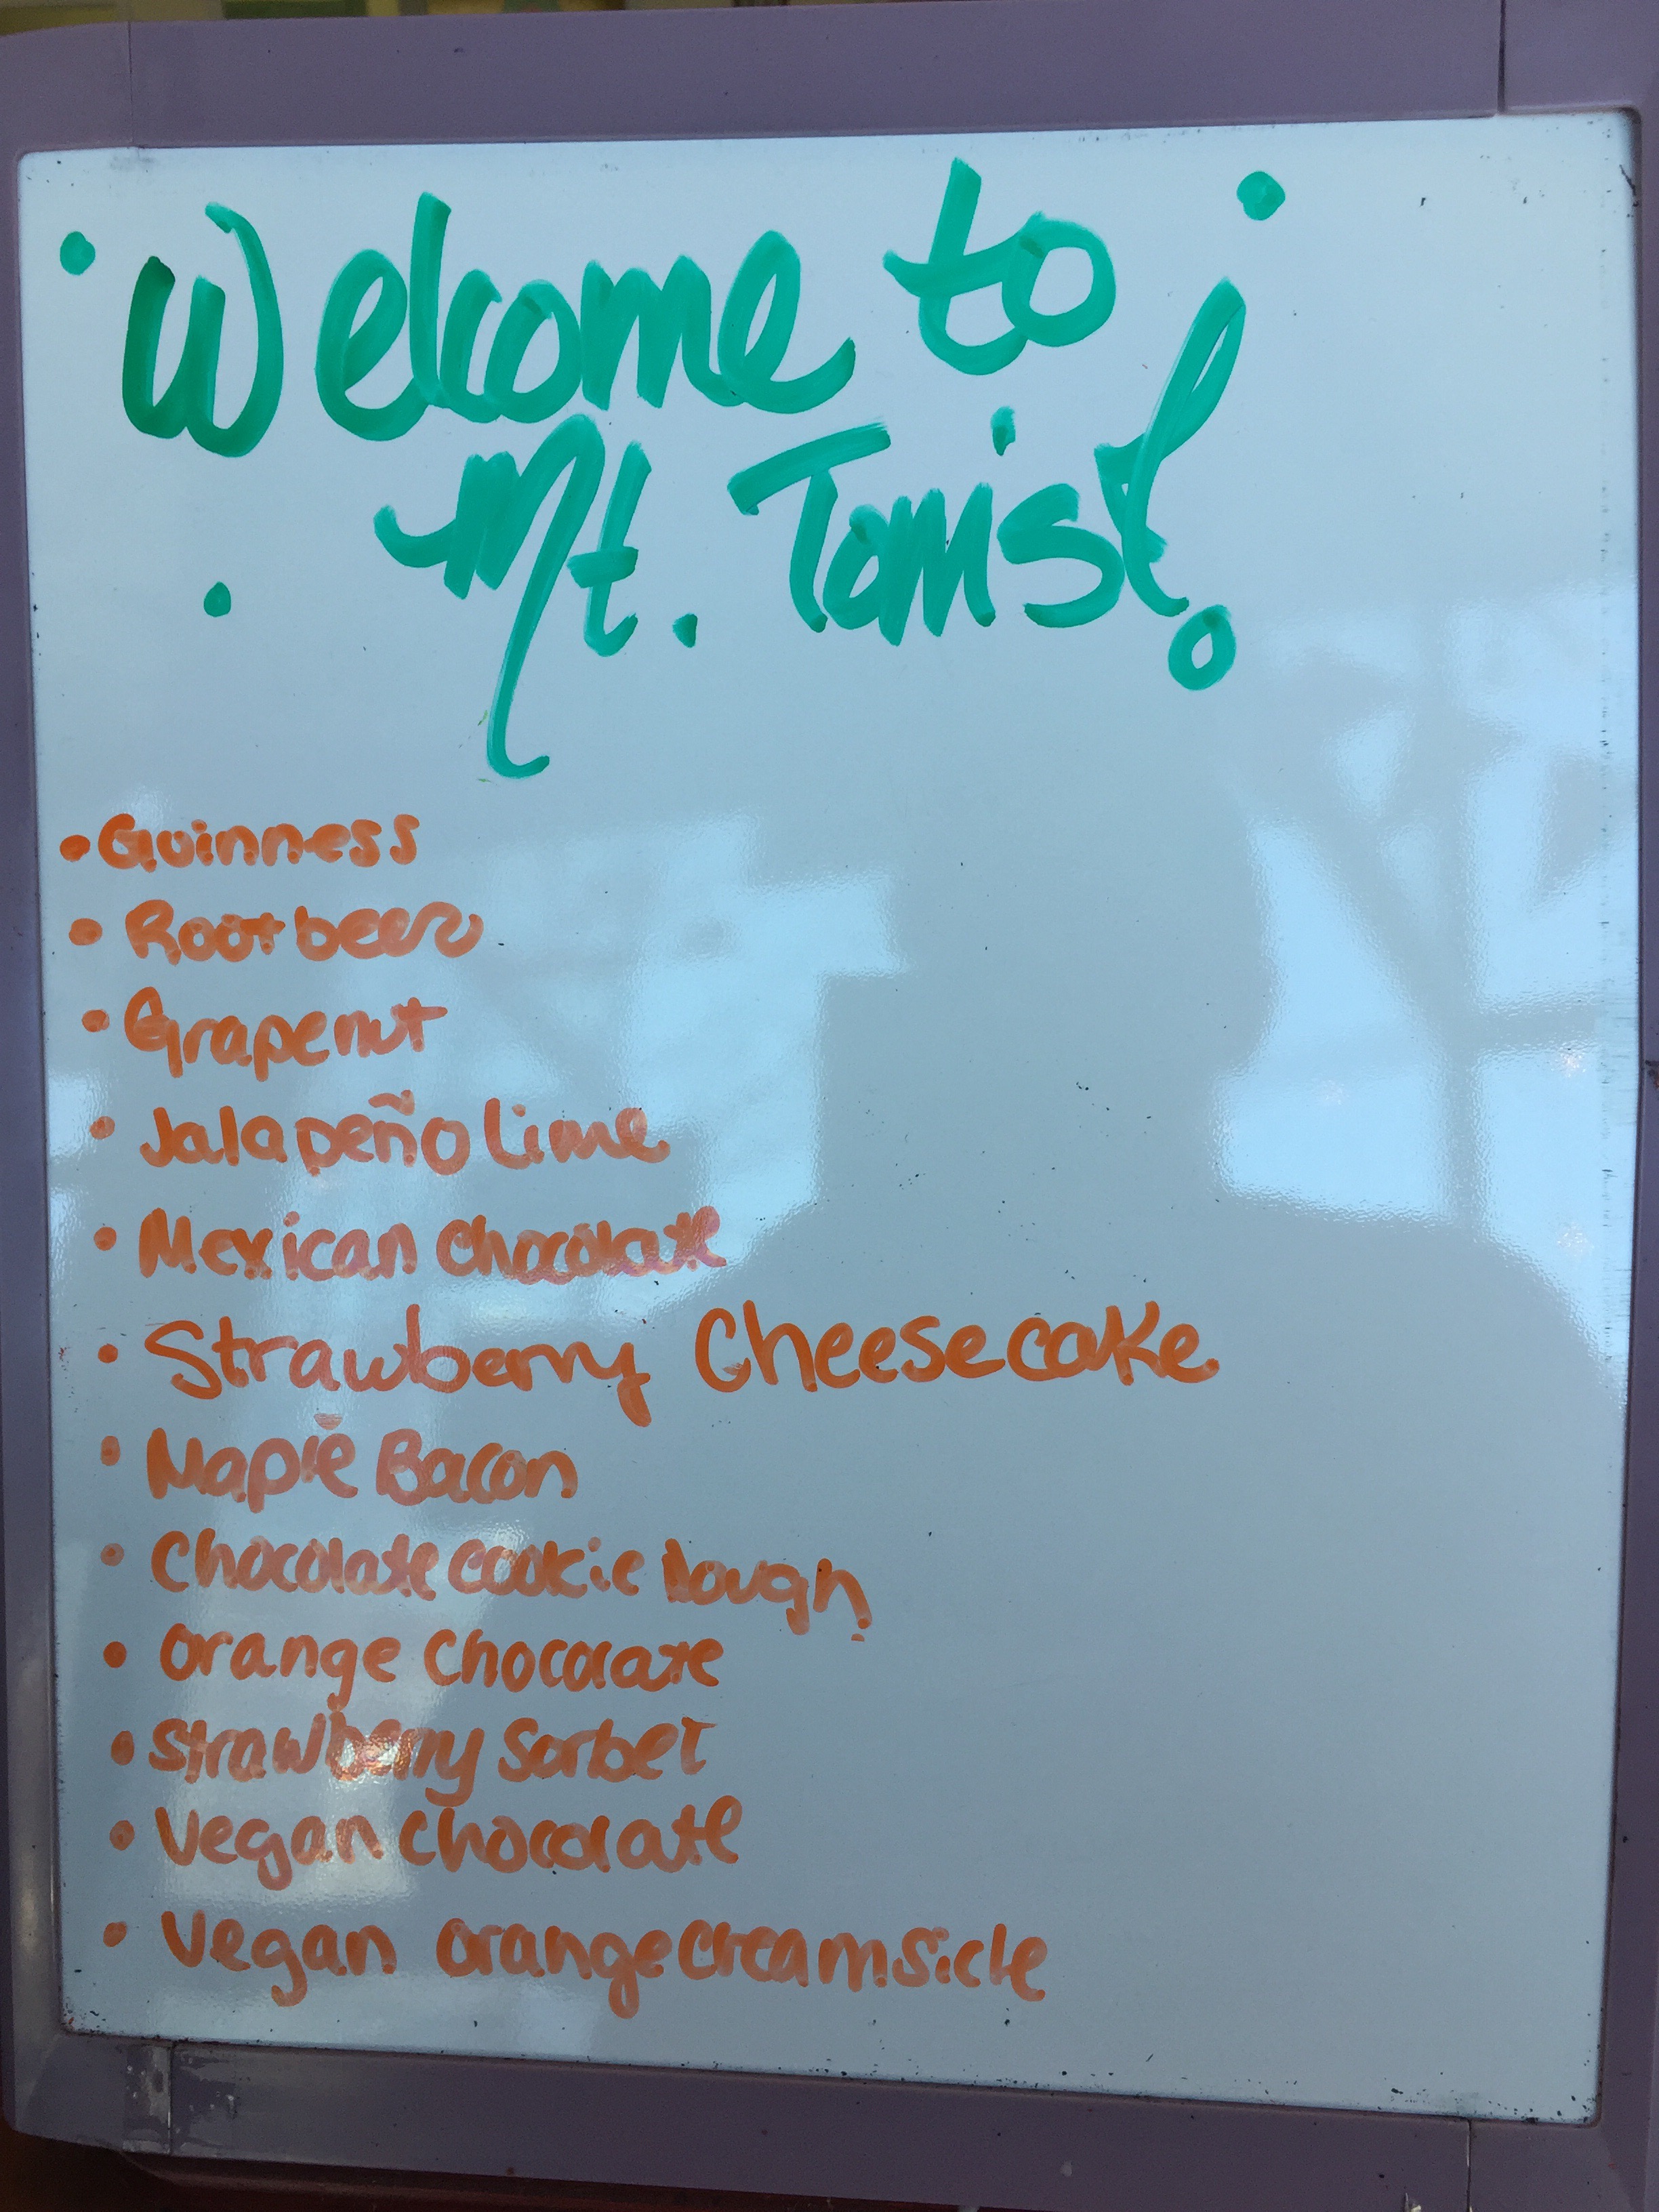 Welcome to
Mt. Tom's!
• Guinness
• Rootbeer
• Grapenut
• Jalapeño Lime
• Mexican Chocolate
• Strawberry Cheesecake
• Maple Bacon
• Chocolate cookie Dough
• Orange Chocolate
• Strawberry Sorbet
• Vegan Chocolate
• Vegan Orange Creamsicle